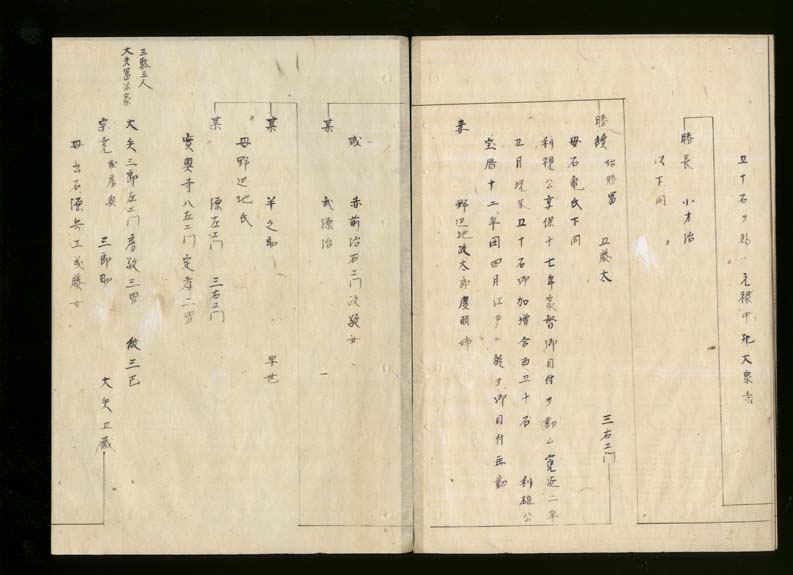 五十石ヲ賜フ 元禄中死 大泉寺
勝長 小才治
以下同
勝積 始勝富 五藤太 三右エ門
母石亀氏下同
利視公享保十七年家督御目付ヲ勤ム寛延二年
五月現米五十石御加増合百五十石 利雄公
宝暦十二年閏四月江戸ニ於テ御目付再勤
妻 野辺地政太郎慶朝姉
或 赤前治右エ門政敬女
某 武源治
某 羊之助 早世
母野辺地氏
某 源左エ門 三右エ門
実奥寺八左エ門定孝二男
三駄三人
大矢冨治家
大矢三郎左エ門房敬三男 紋三巴
宗房央 三郎助 大矢五蔵
母出石源兵エ藤女